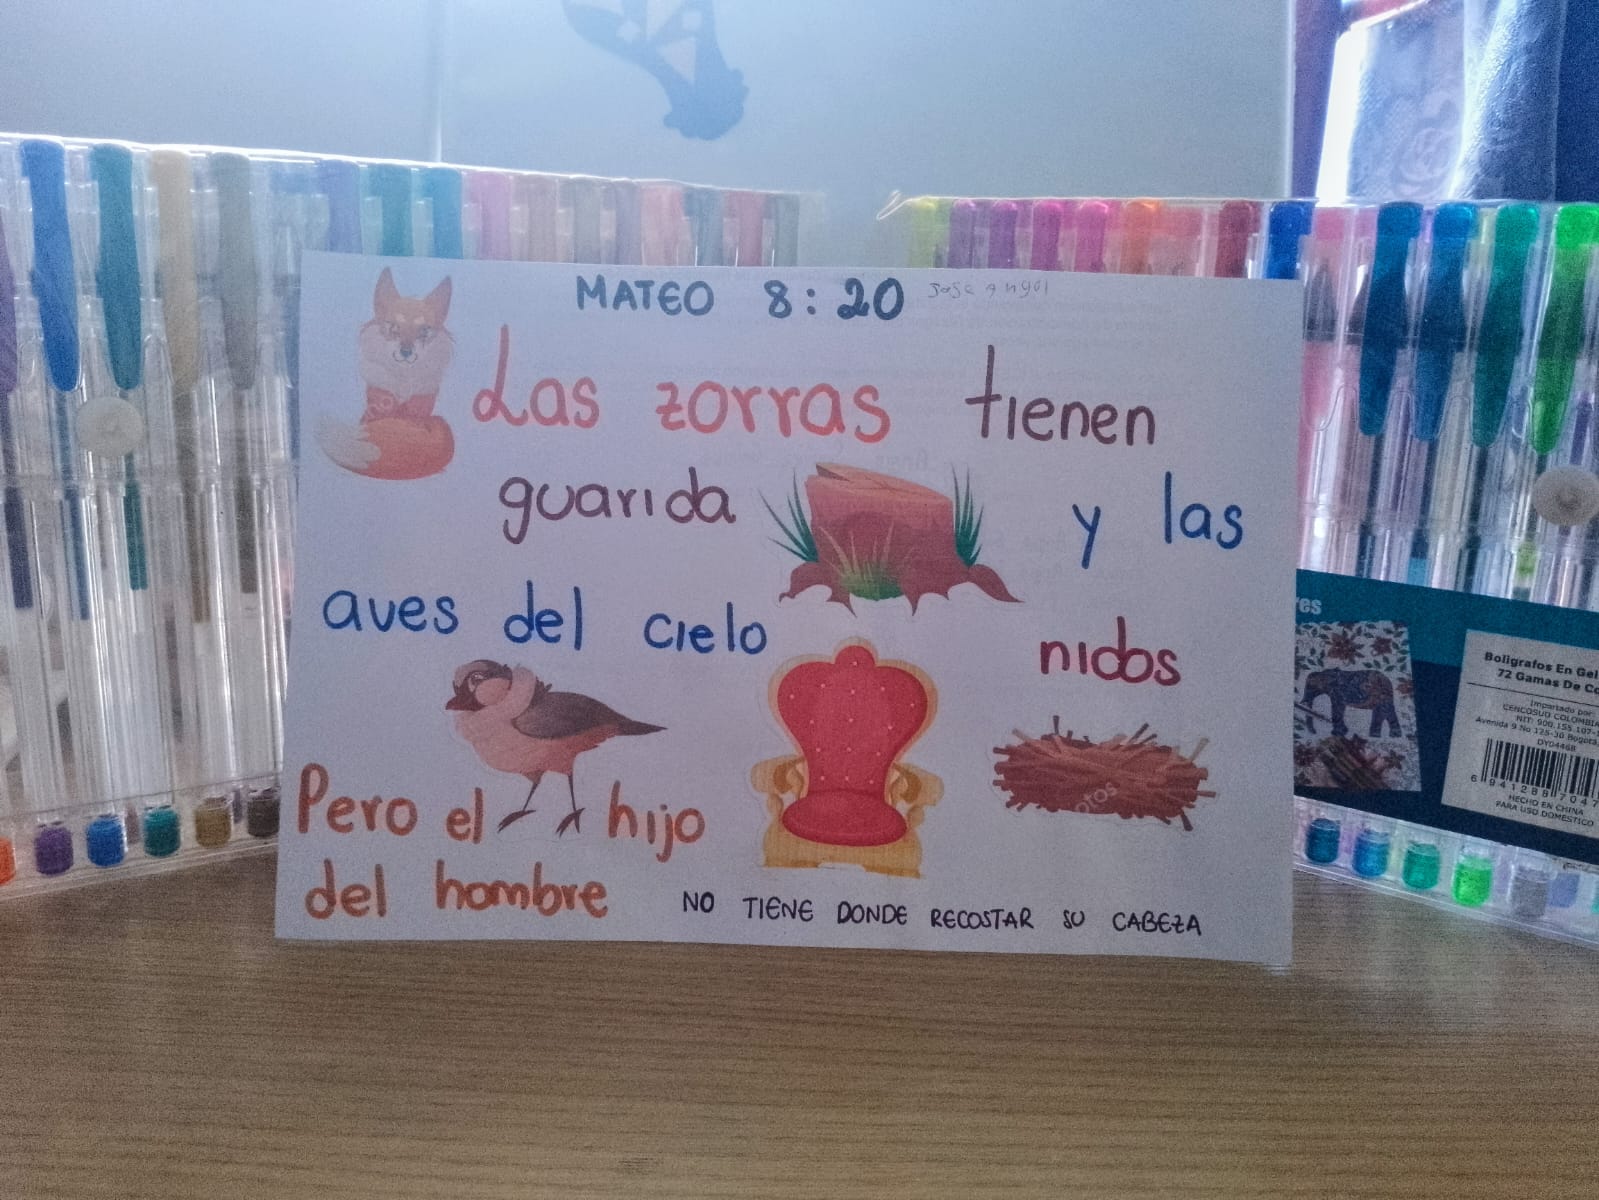 MATEO 8:20 Jose Angel
Las zorras tienen
guarida y las
aves del cielo nidos
Pero el hijo
del hombre NO TIENE DONDE RECOSTAR SU CABEZA
Boligrafos En Gel
72 Gamas De Co
Importado por:
CENCOSUD COLOMBIA
NIT: 900.155.107-
Avenida 9 No 125-30 Bogotá,
DY04468
6 941288 7047
HECHO EN CHINA
PARA USO DOMESTICO